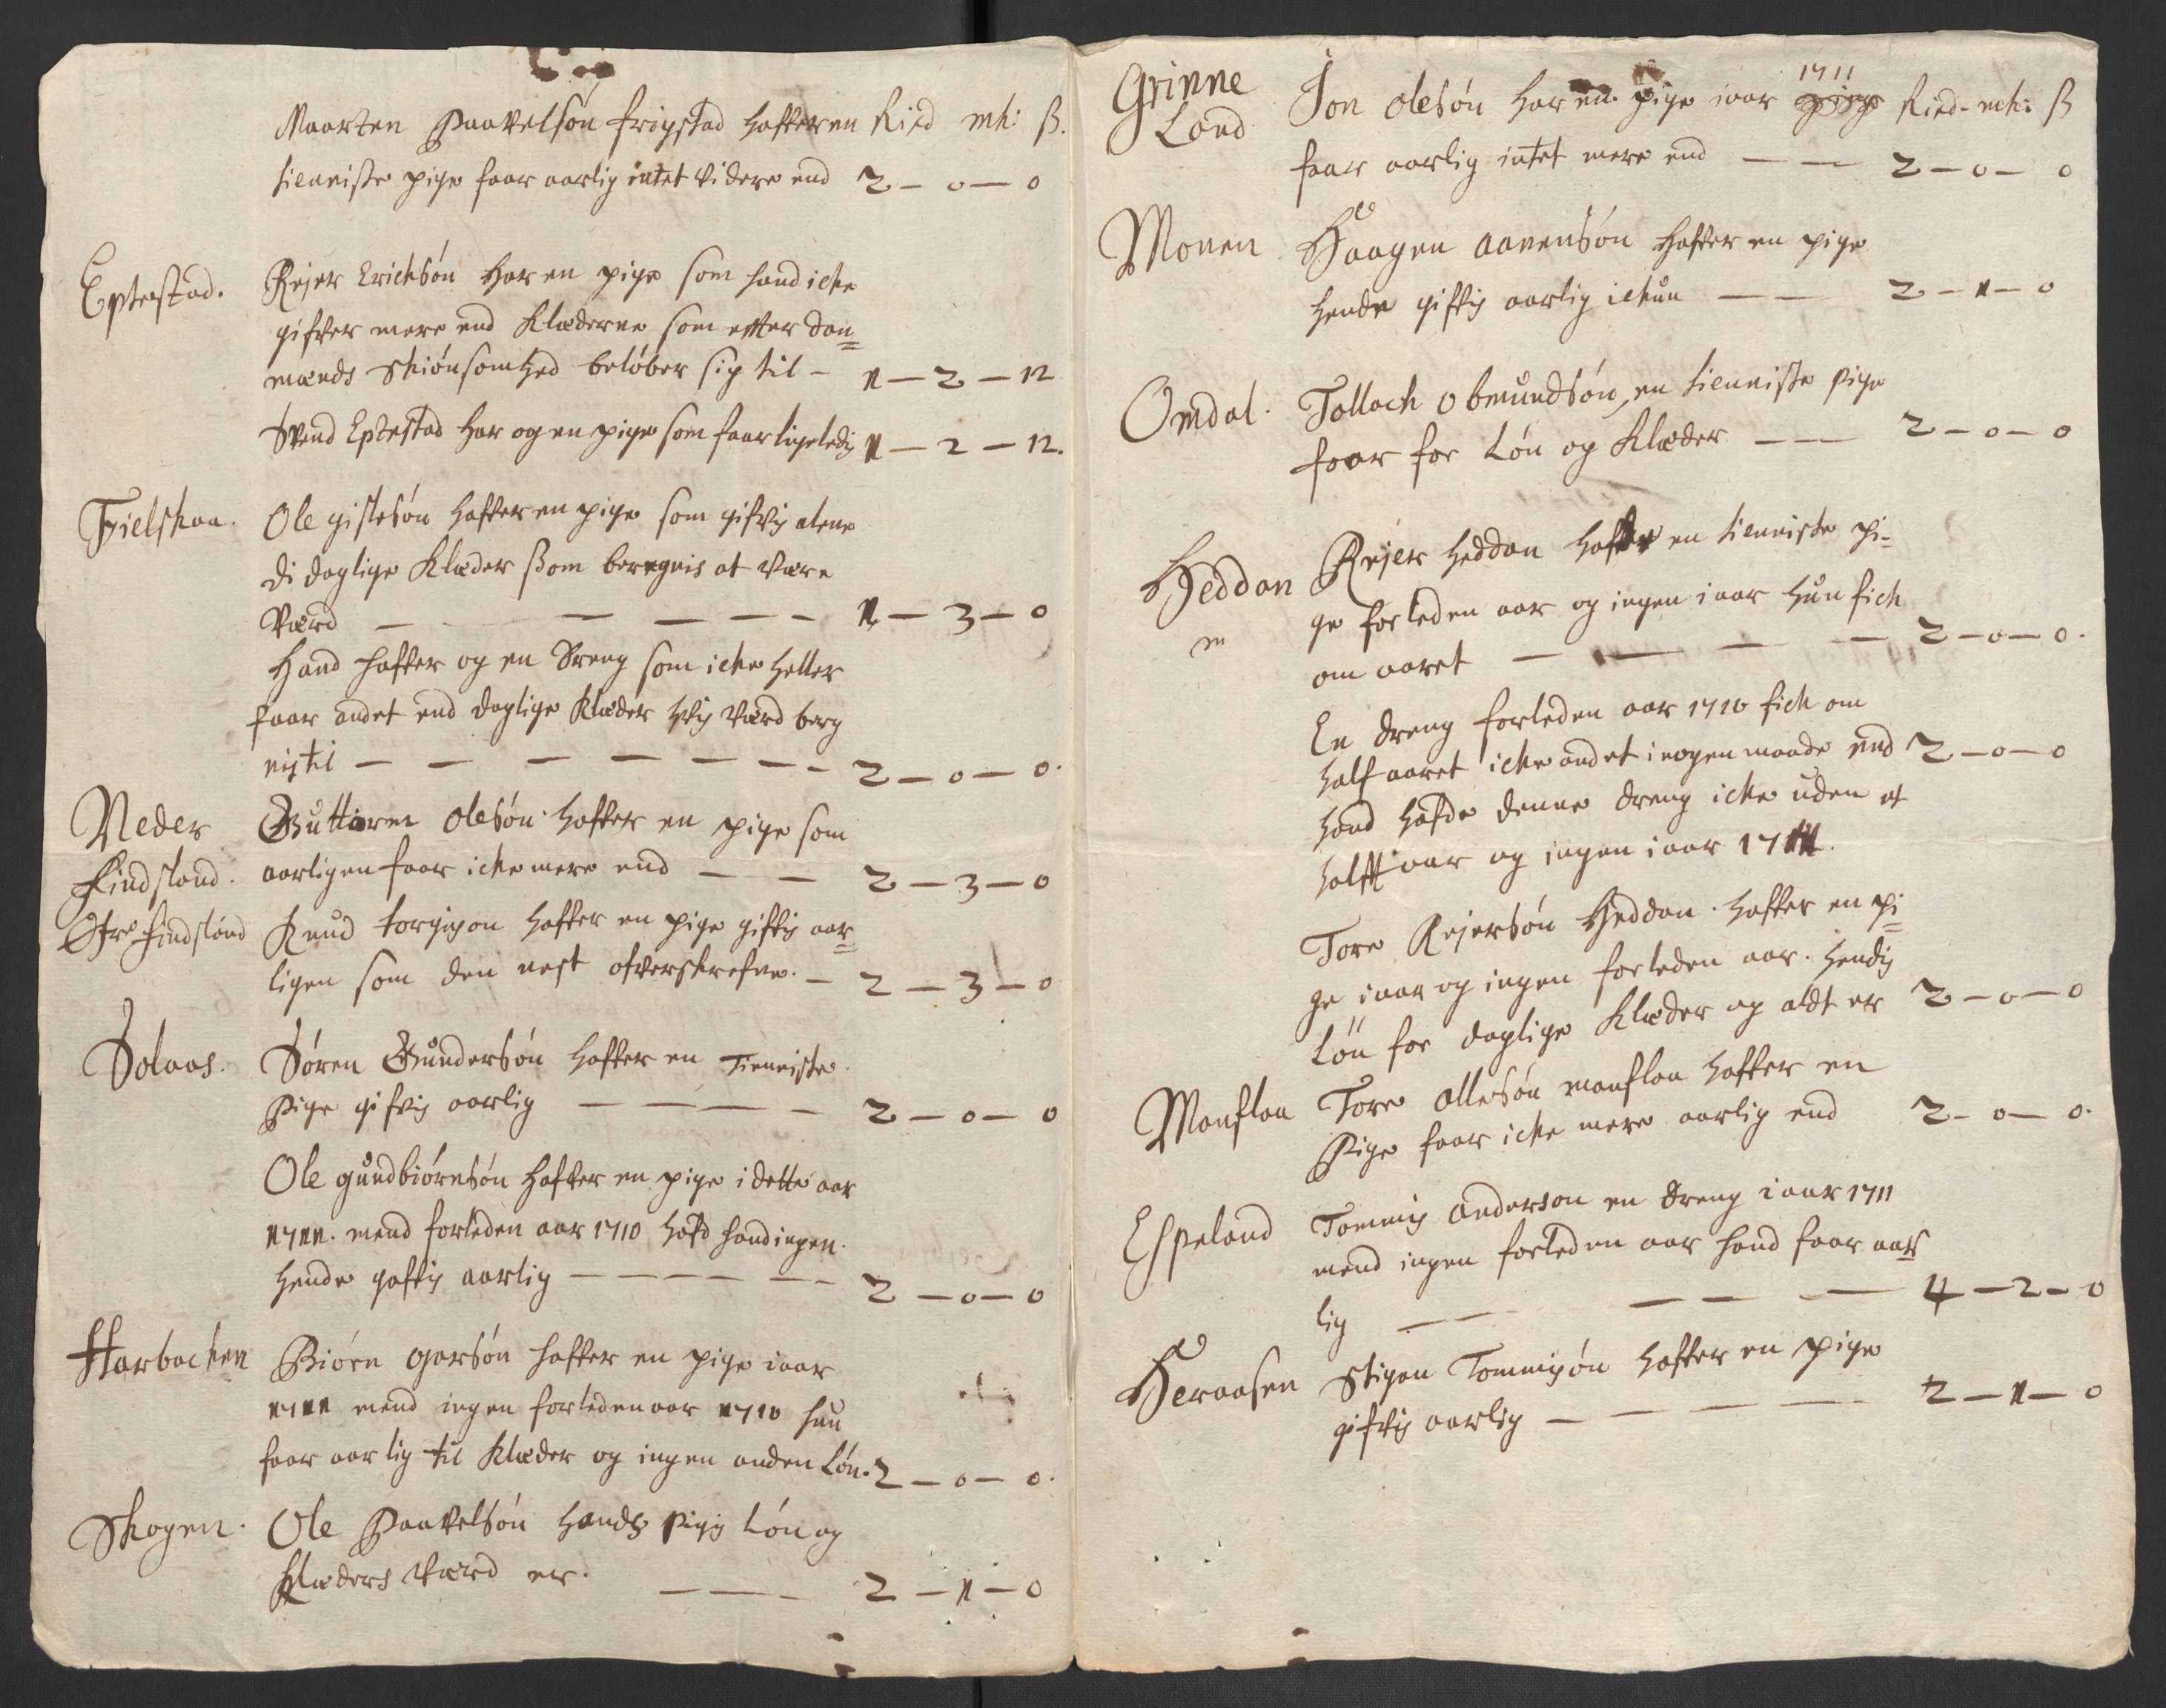 Maarten Paavelsøn frøystad haffer en Ried mk: ß.
tieniste pige faar aarlig intet videre end 2 - 0 - 0
Eptestad. Rejer Erichsøn har en pige som hand icke
gifver mere end Klæderne som etter dan=
mænds Skiønsomhed beløber sig til - 1 - 2 - 12
Svend Eptestad har og en pige som faar ligeledis 1 - 2 - 12.
Fielskaa. Ole gislesøn haffer en pige som gifvis alene
di daglige Klæder ßom beregnis at være
værd - - - - - 1 - 3 - 0
Hand haffer og en Dreng som icke heller
faar andet end daglige Klæder hvis værd bereg
nis til - - - - - - - 2 - 0 - 0.
Neder
Findsland. Guttorm Olesøn haffer en pige som
aarligen faar icke mere end - - 2 - 3 - 0
Øfre findsland Knud torgison haffer en pige giffis aar=
ligen som den nest ofverskrefne. - 2 - 3 - 0
Solaas. Søren Gundersøn haffer en Tieniste
Pige gifvis aarlig - - - - 2 - 0 - 0
Ole gundbiørnsøn haffer en pige i dette aar
1711. mend forleden aar 1710 hafd hand ingen.
hende gaffis aarlig - - - - - - 2 - 0 - 0
Harbacken Biørn gorsøn haffer en pige i aar
1711 mend ingen forleden aar 1710 hun
faar aarlig til Klæder og ingen anden Løn. 2 - 0 - 0.
Skogen. Ole Paavelsøn hands pigis Løn og
Klæders værd er. - - - 2 - 1 - 0
Grinne
Land Jon Olesøn har en pige i aar 1711 Ried - mk: ß
faar aarlig intet mere end - - 2 - 0 - 0
Monen Haagen Aanensøn haffer en pige
hende giffis aarlig ickun - - 2 - 1 - 0
Omdal. Tollach Obmundsøn, en tieniste pige
faar for Løn og Klæder - - 2 - 0 - 0
Heddan Rejer heddan haffer en tieniste pi-
m ge forleden aar og ingen i aar hun fick
om aaret - - - - 2 - 0 - 0.
En dreng forleden aar 1710 fick om
half aaret icke andet i nogen maade end 2 - 0 - 0
hand hafde denne dreng icke uden et
halft aar og ingen i aar 1711.
Tore Rejersøn Heddan. haffer en pi=
ge i aar og ingen forleden aar. hendis
Løn for daglige Klæder og aldt er 2 - 0 - 0
Monflaa Tore Ollesøn monflaa haffer en
Pige faar icke mere aarlig end 2 - 0 - 0.
Espeland Tommis Anderson en dreng i aar 1711
mend ingen forleden aar hand faar aar
lig - - - - - 4 - 2 - 0
Heraasen Stigen Tommisøn haffer en pige
gifvis aarlig - - - - 2 - 1 - 0